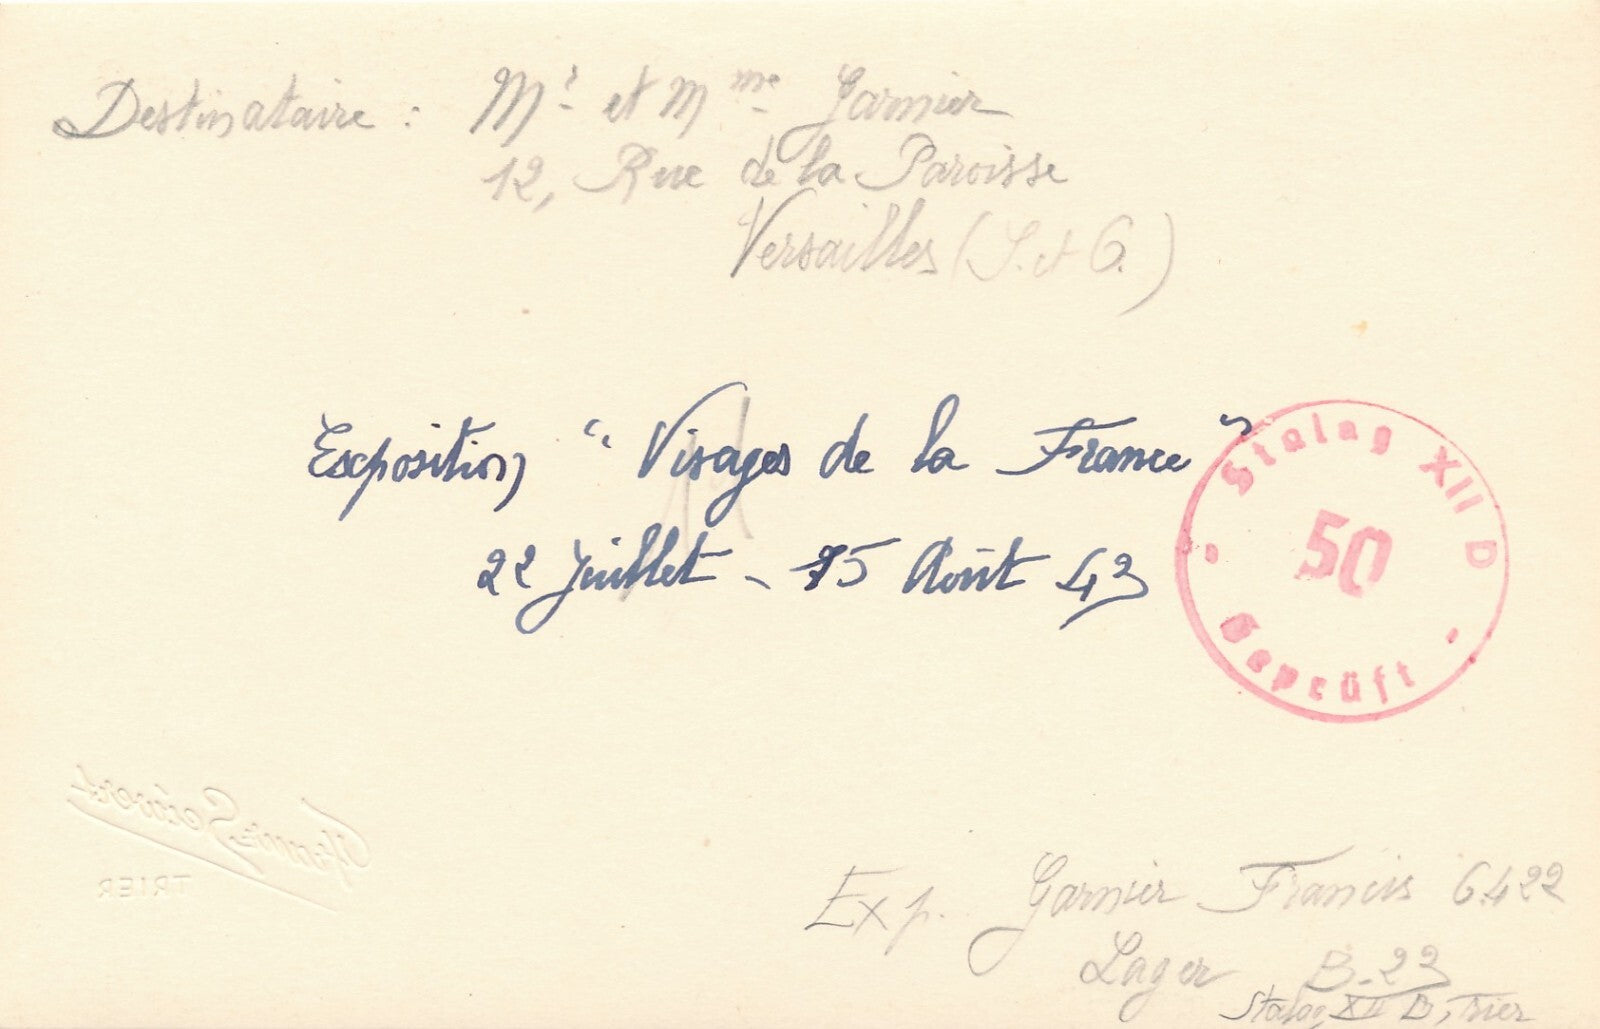 Destinataire : Mr et Mme Garnier
12, Rue de la Paroisse
Versailles (S. et O.)
Exposition " Visages de la France "
22 Juillet - 15 Août 43
Stalag XII D
50
Geprüft
TRIER
Exp. Garnier Francis 6422
Lager B.23
Stalag XII D, Trier